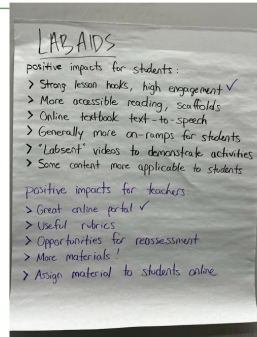 LAB AIDS
positive impacts for students:
> Strong lesson hooks, high engagement ✓
> More accessible reading, scaffolds
> Online textbook text-to-speech
> Generally more on-ramps for students
> "Labsent" videos to demonstrate activities
> Some content more applicable to students
positive impacts for teachers:
> Great online portal ✓
> Useful rubrics
> Opportunities for reassessment
> More materials!
> Assign material to students online